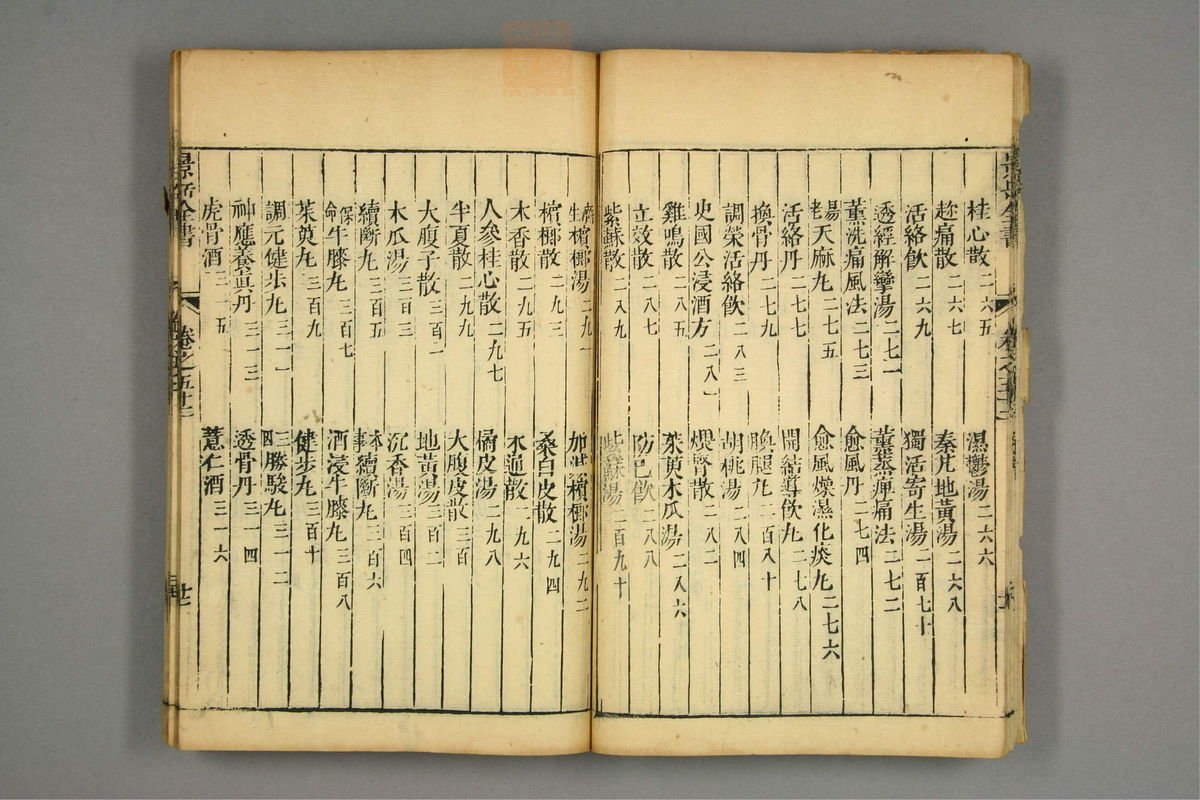 景岳全書
卷之五十二
桂心散二六五　濕鬱湯二六六
趂痛散二六七　秦艽地黃湯二六八
活絡飲二六九　獨活寄生湯二百七十
透經解攣湯二七一　薰蒸痺痛法二七二
薰洗痛風法二七三　愈風丹二七四
老鴉天麻丸二七五　愈風燥濕化痰丸二七六
活絡丹二七七　開結導飲丸二七八
換骨丹二七九　換腿丸二百八十
調榮活絡飲二八三　胡桃湯二八四
史國公浸酒方二八一　煨腎散二八二
雞鳴散二八五　茱萸木瓜湯二八六
立效散二八七　防己飲二八八
紫蘇散二八九　紫蘇湯二百九十
檳榔湯二九一　加減檳榔湯二九二
檳榔散二九三　桑白皮散二九四
木香散二九五　木通散二九六
人參桂心散二九七　橘皮湯二九八
半夏散二九九　大腹皮散三百
大腹子散三百一　地黃湯三百二
木瓜湯三百三　沉香湯三百四
續斷丸三百五　本事續斷丸三百六
保命牛膝丸三百七　酒浸牛膝丸三百八
茱萸丸三百九　健步丸三百十
調元健步丸三一一　三勝駿丸三一二
神應養眞丹三一三　透骨丹三一四
虎骨酒三一五　薏仁酒三一六
景岳全書
卷之五十二